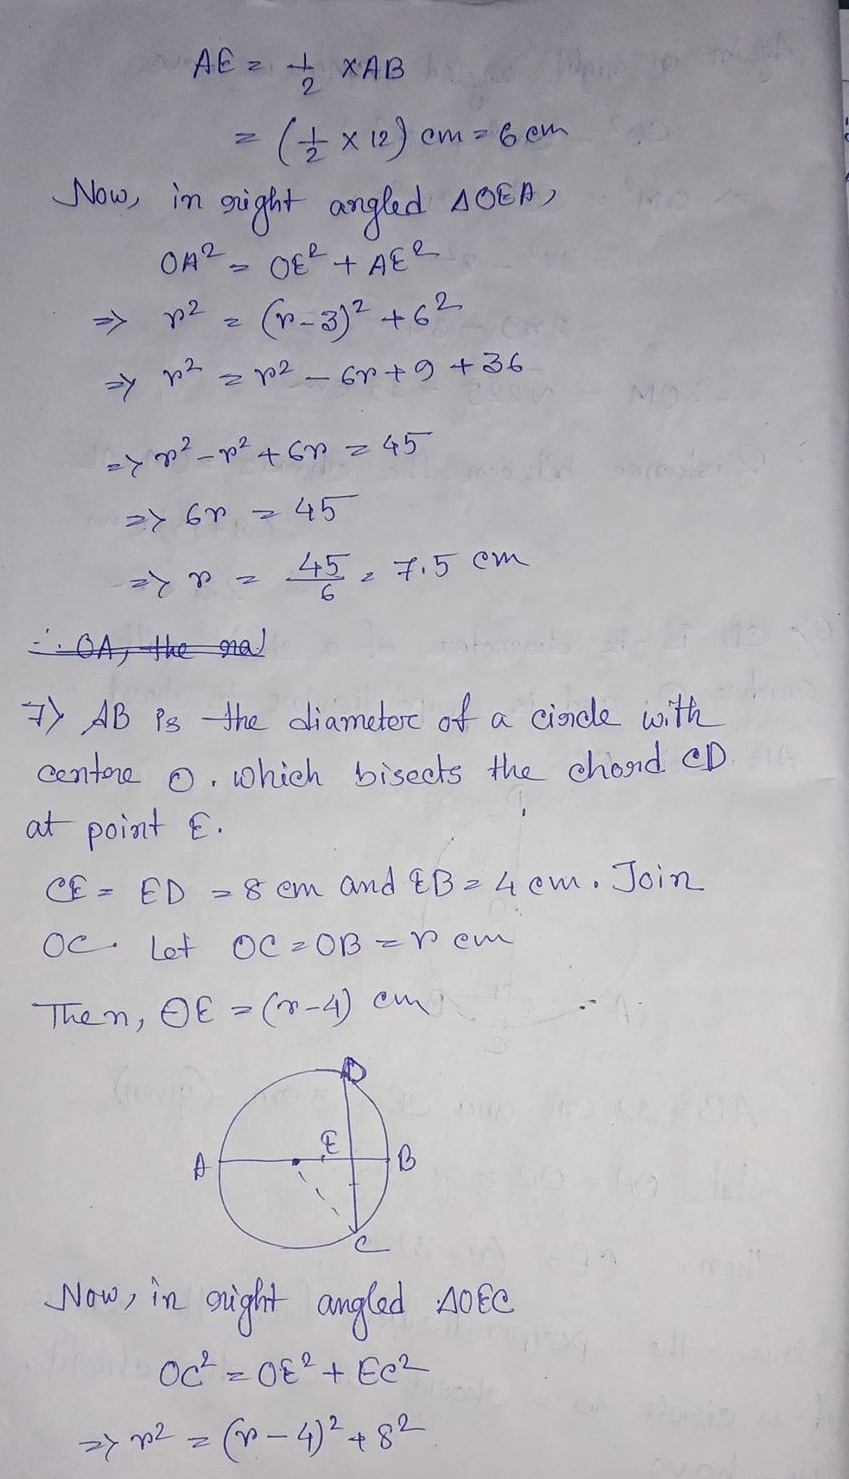 AE = 1/2 × AB
= (1/2 × 12) cm = 6 cm
Now, in right angled ΔOEA,
OA² = OE² + AE²
⇒ r² = (r-3)² + 6²
⇒ r² = r² - 6r + 9 + 36
⇒ r² - r² + 6r = 45
⇒ 6r = 45
⇒ r = 45/6 = 7.5 cm
∴ OA, the ra
7) AB is the diameter of a circle with
centre O. which bisects the chord CD
at point E.
CE = ED = 8 cm and EB = 4 cm. Join
OC. Let OC = OB = r cm
Then, OE = (r-4) cm
D
E
A B
C
Now, in right angled ΔOEC
OC² = OE² + EC²
⇒ r² = (r-4)² + 8²